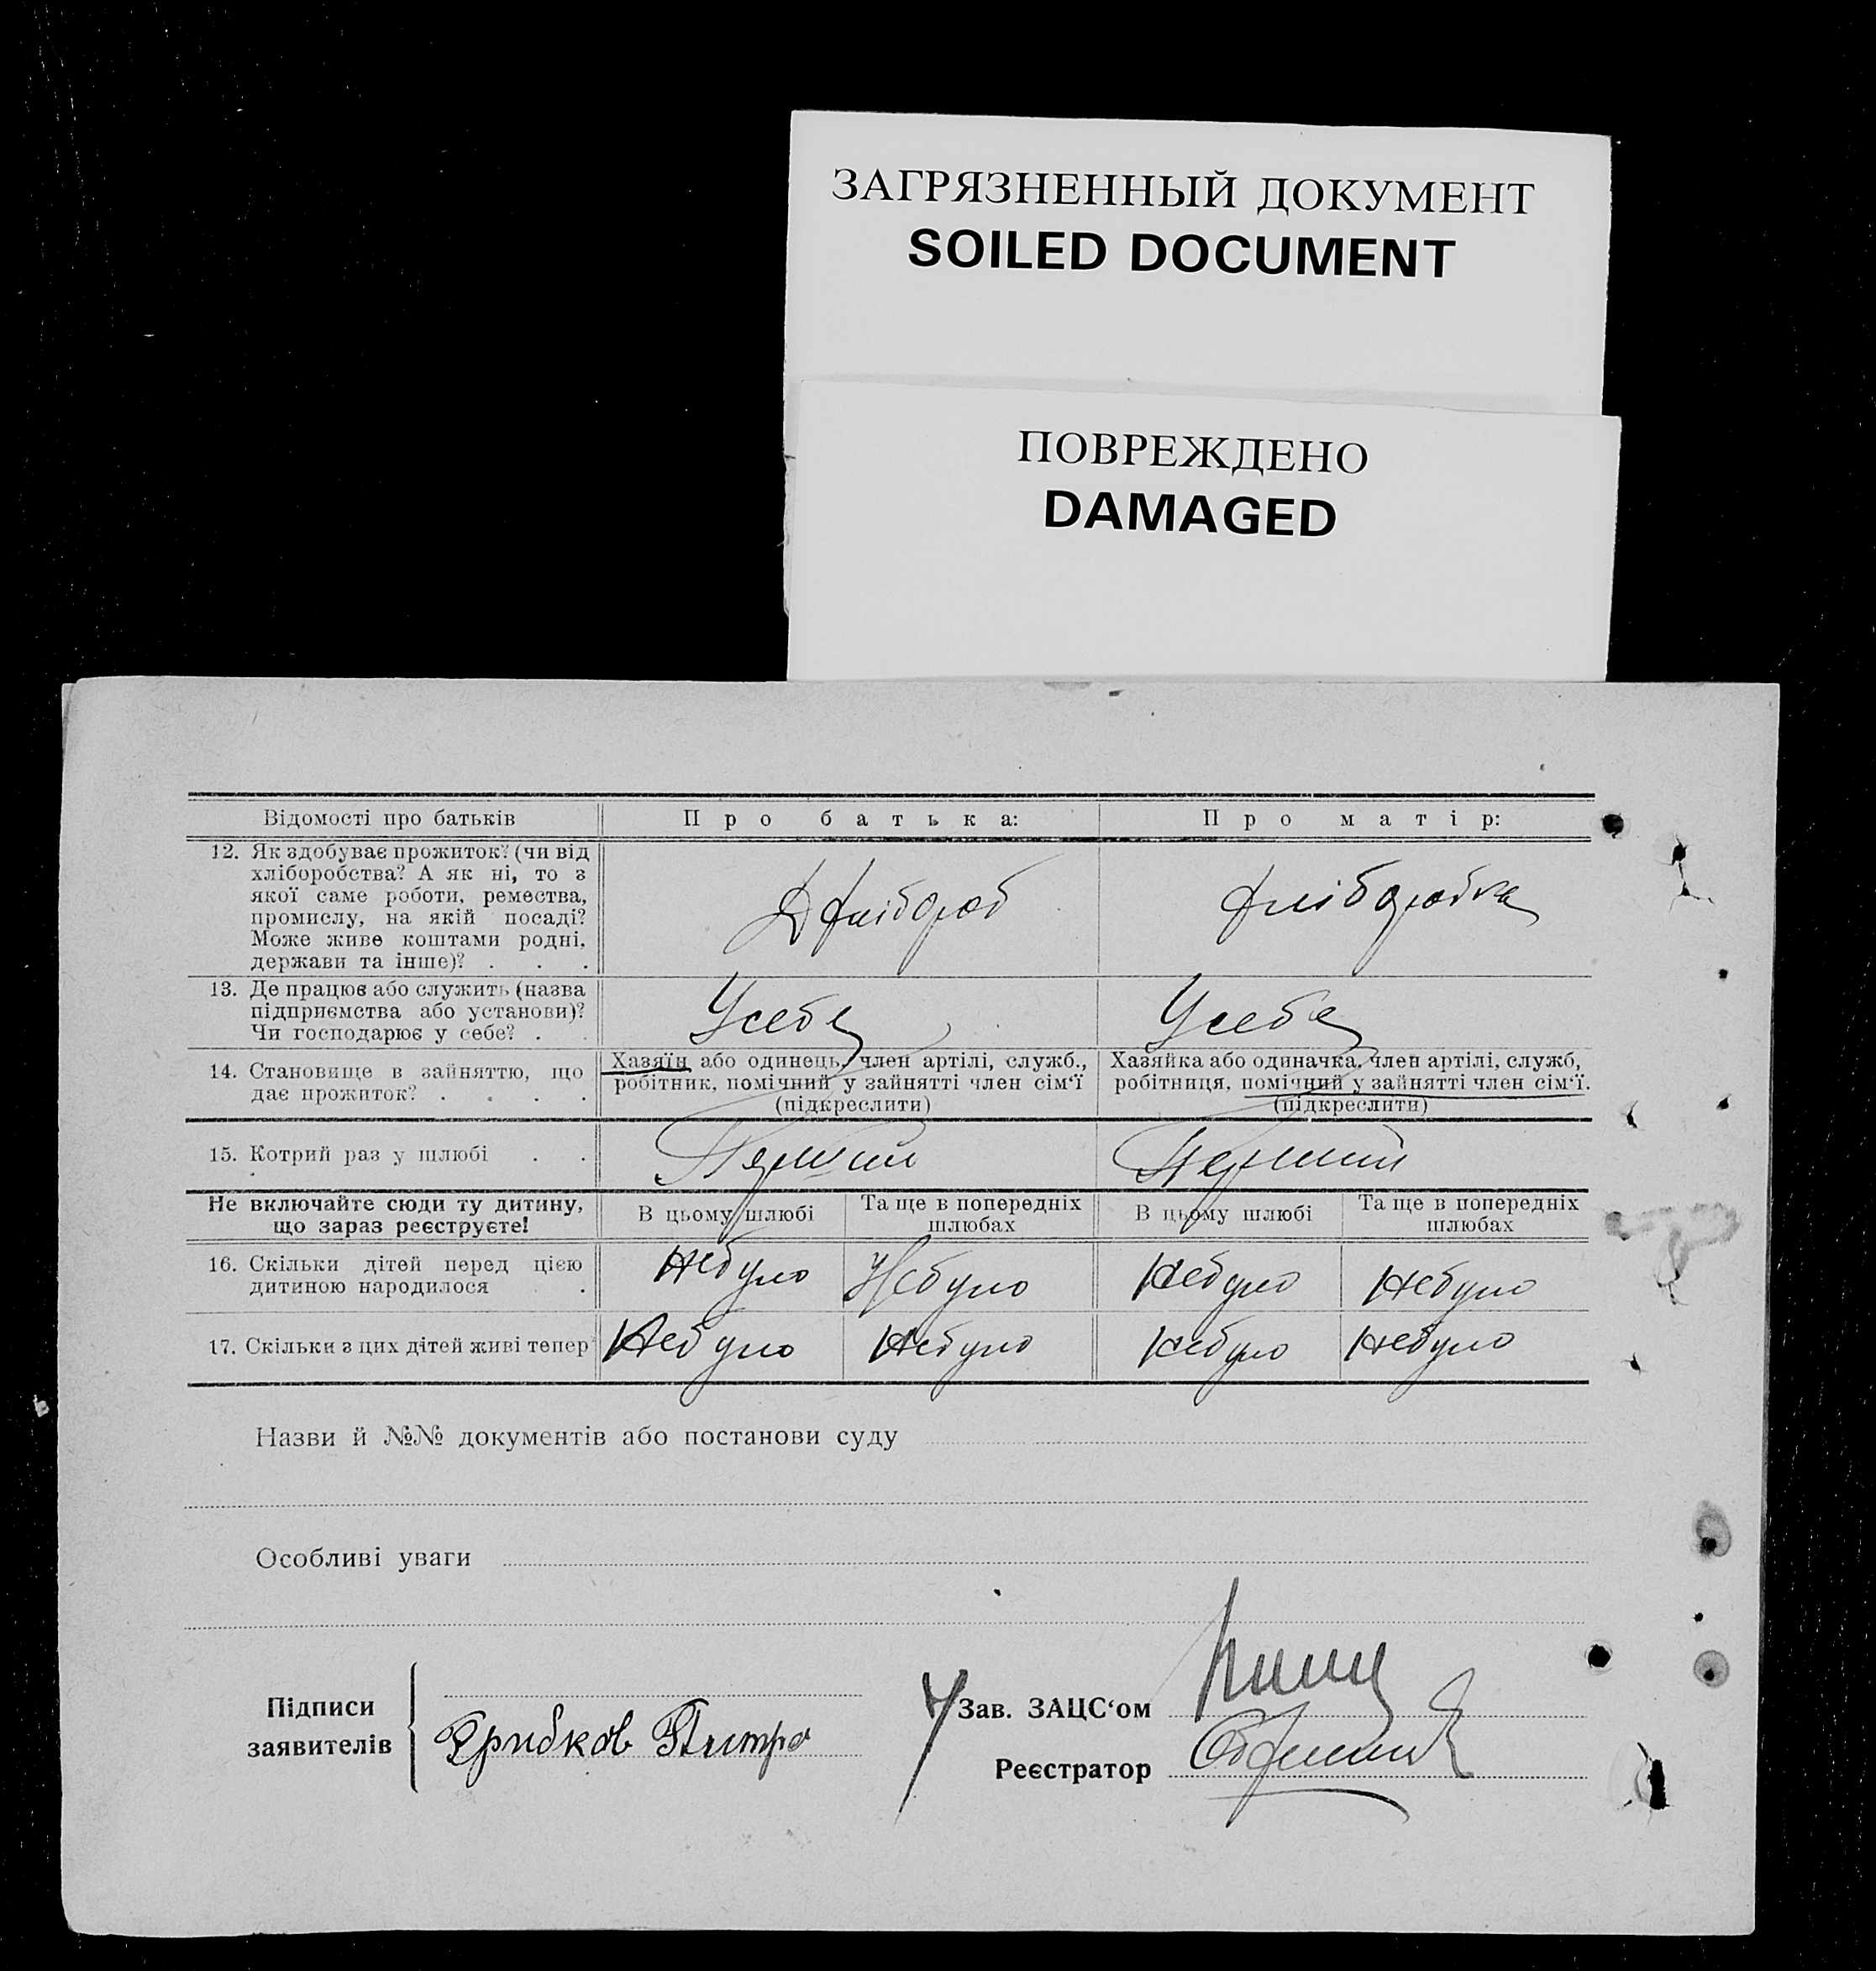 ЗАГРЯЗНЕННЫЙ ДОКУМЕНТ
SOILED DOCUMENT
ПОВРЕЖДЕНО
DAMAGED
Відомості про батьків
Про батька:
Про матір:
12. Як здобуває прожиток? (чи від
хліборобства? А як ні, то з
якої саме роботи, ремества,
промислу, на якій посаді?
Може живе коштами родні,
держави та інше)? . . .
Хлібороб
Хліборобка
13. Де працює або служить (назва
підприємства або установи)?
Чи господарює у себе? .
Усебе
Усебе
14. Становище в зайняттю, що
дає прожиток? . . . .
Хазяїн або одинець, член артілі, служб.,
робітник, помічний у зайнятті член сім‘ї
(підкреслити)
Хазяйка або одиначка, член артілі, служб,
робітниця, помічний у зайнятті член сім‘ї.
(підкреслити)
15. Котрий раз у шлюбі . .
Перший
Перший
Не включайте сюди ту дитину,
що зараз реєструєте!
В цьому шлюбі
Та ще в попередніх
шлюбах
В цьому шлюбі
Та ще в попередніх
шлюбах
16. Скільки дітей перед цією
дитиною народилося .
Небуло
Небуло
Небуло
Небуло
17. Скільки з цих дітей живі тепер
Небуло
Небуло
Небуло
Небуло
Назви й №№ документів або постанови суду
Особливі уваги
Підписи
заявителів
Грибков Дмитро
Зав. ЗАЦС‘ом
Реєстратор